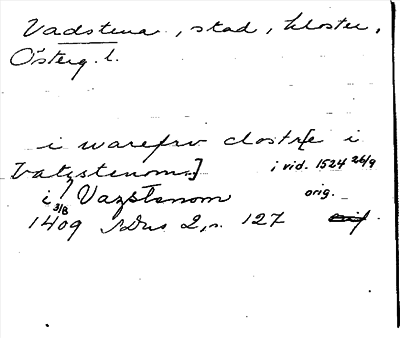 Vadstena, stad, kloster,
Österg. l.
i warefrv clostr[e i
Vatzstenom] i vid. 1524 26/9
i Vazstenom orig.
1409 3/8 SDns 2, s. 127